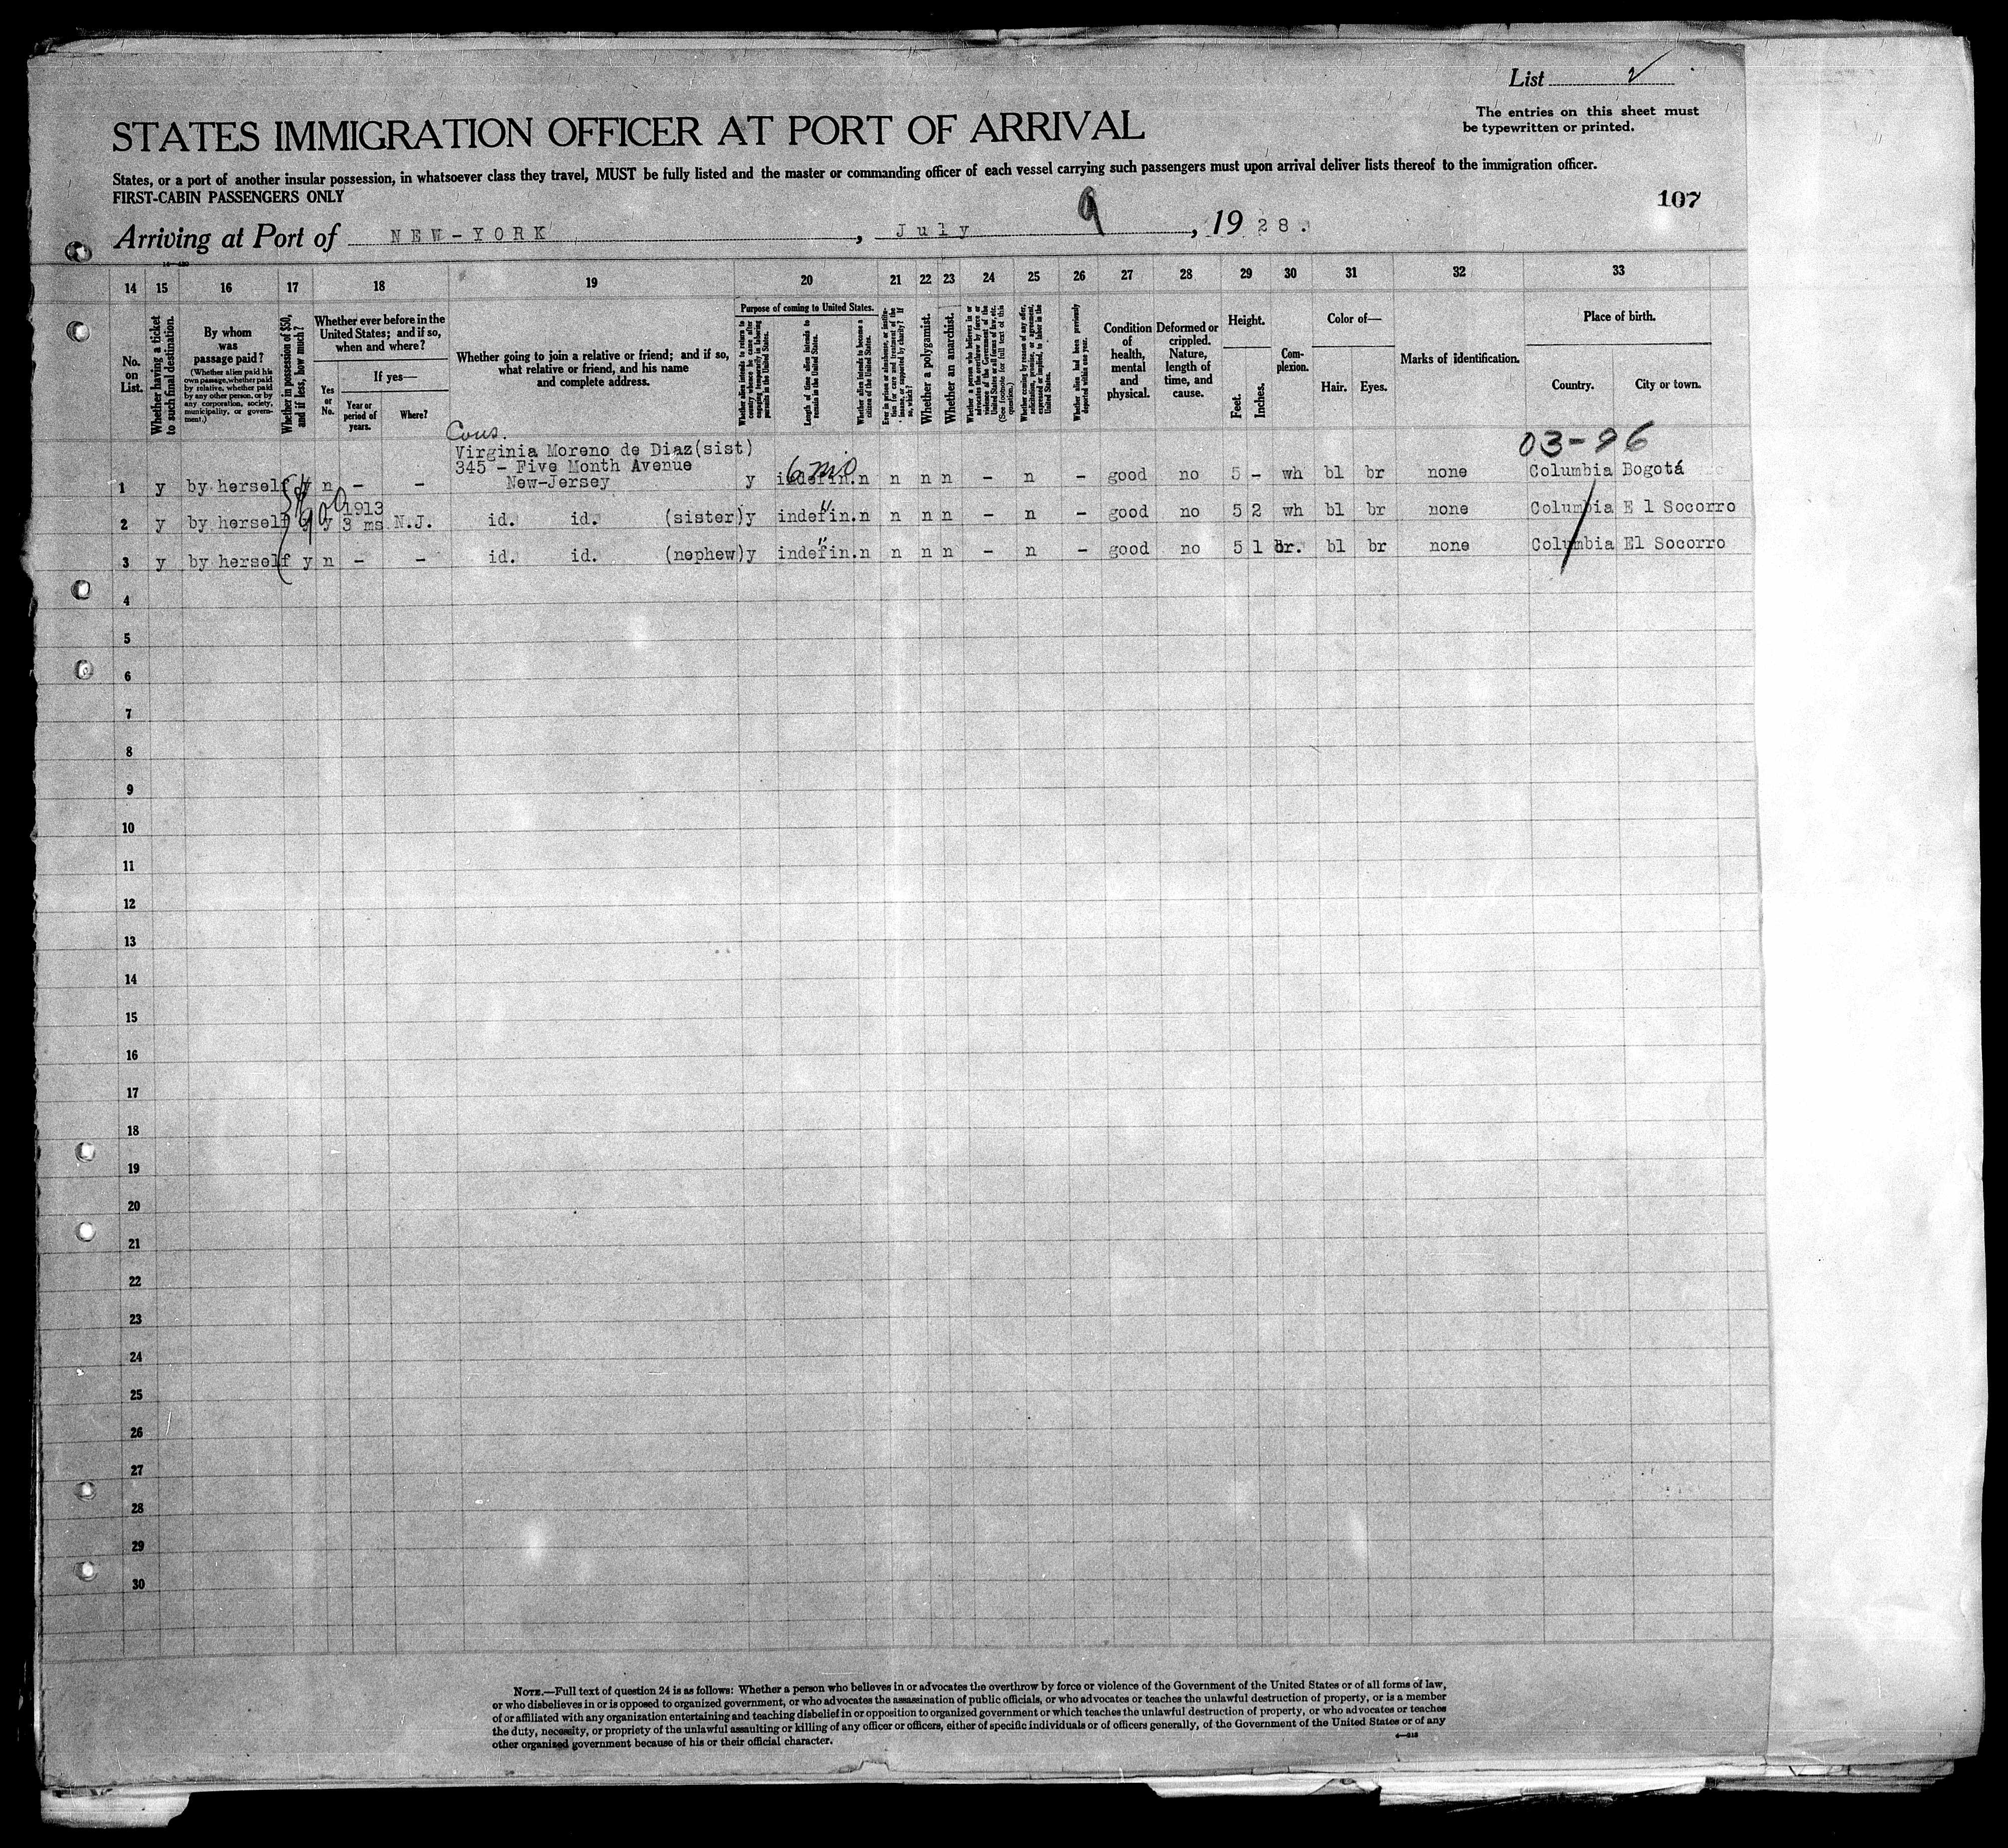 List 2
The entries on this sheet must
be typewritten or printed.
STATES IMMIGRATION OFFICER AT PORT OF ARRIVAL
States, or a port of another insular possession, in whatsoever class they travel, MUST be fully listed and the master or commanding officer of each vessel carrying such passengers must upon arrival deliver lists thereof to the immigration officer.
FIRST-CABIN PASSENGERS ONLY
107
Arriving at Port of NEW-YORK, July 9, 1928.
14 15 16 17 18 19 20 21 22 23 24 25 26 27 28 29 30 31 32 33
No. on List.
Whether having a ticket to such final destination.
By whom was passage paid?
(Whether alien paid his own passage, whether paid by relative, whether paid by any other person, or by any corporation, society, municipality, or government.)
Whether in possession of $50, and if less, how much?
Whether ever before in the United States; and if so, when and where?
Yes or No.
If yes—
Year or period of years.
Where?
Whether going to join a relative or friend; and if so, what relative or friend, and his name and complete address.
Purpose of coming to United States.
Whether alien intends to return to country whence he came after engaging temporarily in laboring pursuits in the United States.
Length of time alien intends to remain in the United States.
Whether alien intends to become a citizen of the United States.
Ever in prison or almshouse, or institution for care and treatment of the insane, or supported by charity? If so, which?
Whether a polygamist.
Whether an anarchist.
Whether a person who believes in or advocates the overthrow by force or violence of the Government of the United States or all forms of law, etc. (See footnote for full text of this question.)
Whether coming by reason of any offer, solicitation, promise, or agreement, expressed or implied, to labor in the United States.
Whether alien had been previously deported within one year.
Condition of health, mental and physical.
Deformed or crippled. Nature, length of time, and cause.
Height.
Feet. Inches.
Complexion.
Color of—
Hair. Eyes.
Marks of identification.
Place of birth.
Country. City or town.
Cous.
03-96
Virginia Moreno de Diaz(sist)
345 - Five Month Avenue
1 y by herself y n - - New-Jersey y indefin. 6 mo n n n n - n - good no 5 - wh bl br none Columbia Bogotá
2 y by herself y y 1913 3 ms N.J. id. id. (sister) y indefin. " n n n n - n - good no 5 2 wh bl br none Columbia E l Socorro
3 y by herself y n - - id. id. (nephew) y indefin. " n n n n - n - good no 5 1 br. bl br none Columbia El Socorro
4
5
6
7
8
9
10
11
12
13
14
15
16
17
18
19
20
21
22
23
24
25
26
27
28
29
30
NOTE.—Full text of question 24 is as follows: Whether a person who believes in or advocates the overthrow by force or violence of the Government of the United States or of all forms of law,
or who disbelieves in or is opposed to organized government, or who advocates the assassination of public officials, or who advocates or teaches the unlawful destruction of property, or is a member
of or affiliated with any organization entertaining and teaching disbelief in or opposition to organized government or which teaches the unlawful destruction of property, or who advocates or teaches
the duty, necessity, or propriety of the unlawful assaulting or killing of any officer or officers, either of specific individuals or of officers generally, of the Government of the United States or of any
other organized government because of his or their official character.